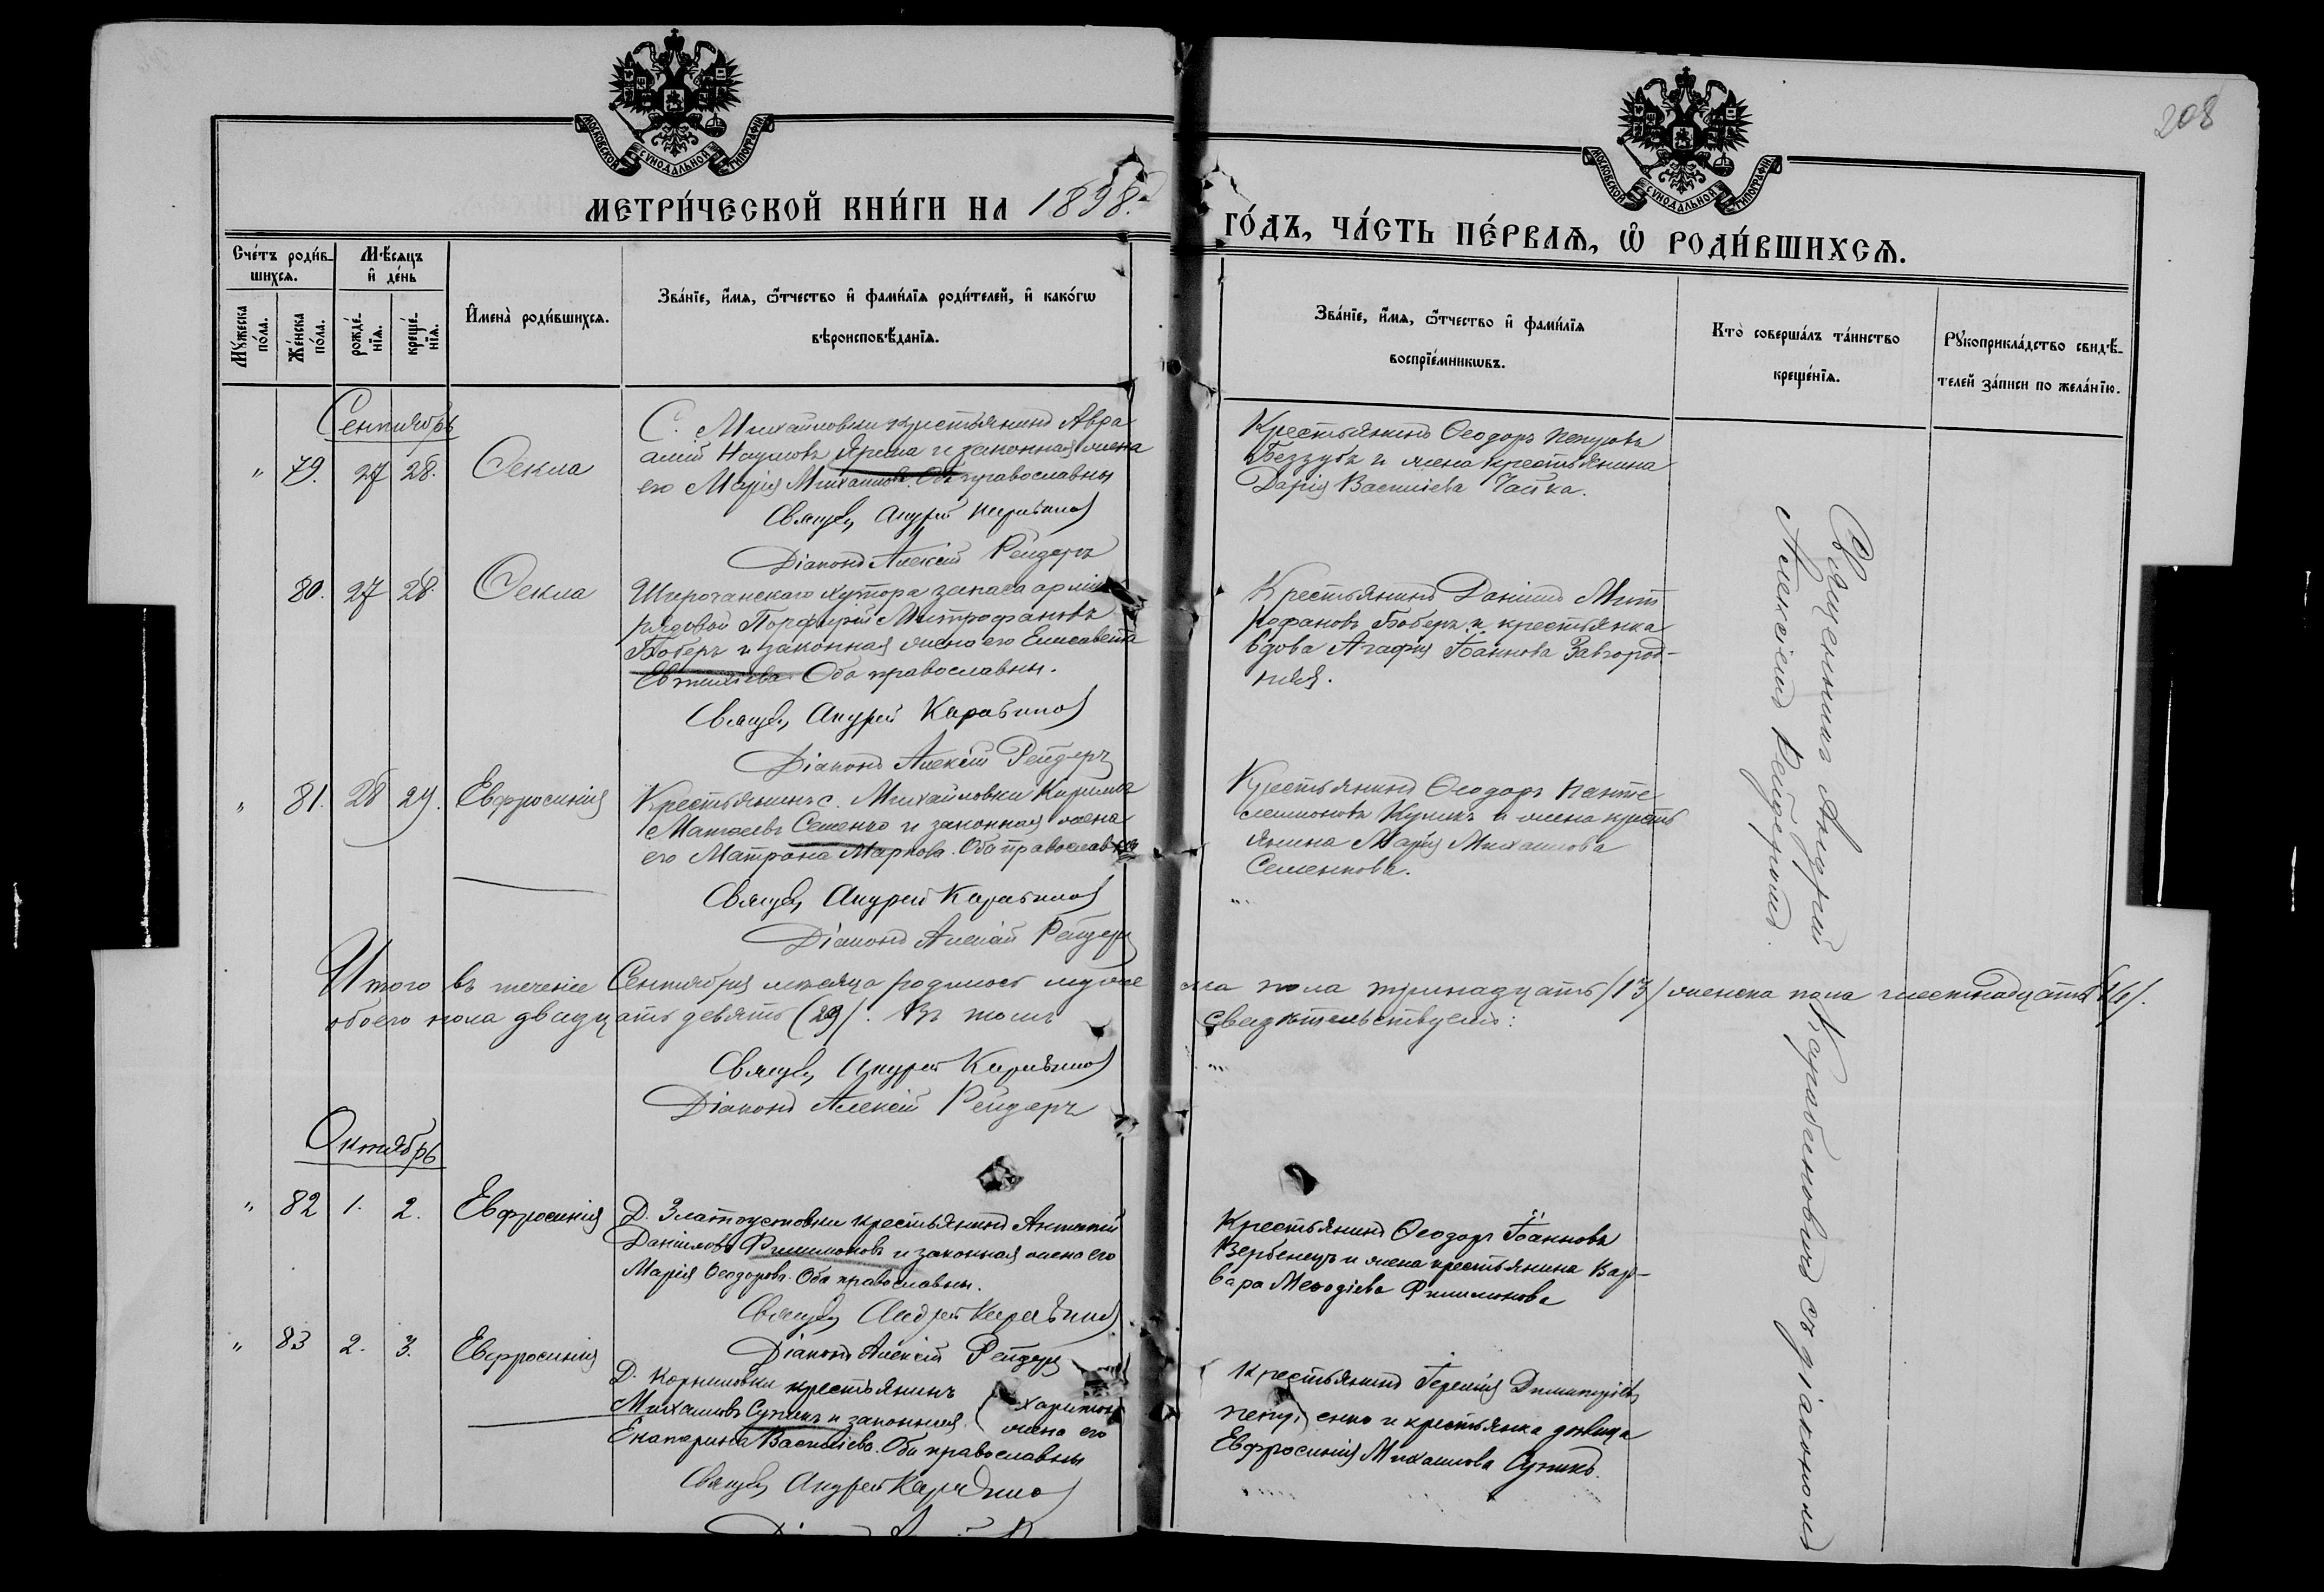 208
МОСКОВСКОЙ СѴНОДАЛЬНОЙ ТИПОГРАФІИ
МОСКОВСКОЙ СѴНОДАЛЬНОЙ ТИПОГРАФІИ
МЕТРИ́ЧЕСКОЙ КНИ́ГИ НА 1898.
ГО́ДЪ, ЧА́СТЬ ПЕ́РВАѦ, Ѽ РОДИ́ВШИХСѦ.
Сче́тъ роди́в-
шихсѧ.
Мѣ́сѧцъ
и҆ де́нь
Мꙋ́жеска по́ла.
Же́нска по́ла.
рожде́-нїѧ.
креще́-нїѧ.
И҆мена̀ роди́вшихсѧ.
Зва́нїе, и҆́мѧ, ѻ҆́тчество и҆ фами́лїѧ роди́телей, и҆ како́гѡ
вѣроисповѣ́данїѧ.
Зва́нїе, и҆́мѧ, ѻ҆́тчество и҆ фами́лїѧ
воспрїе́мникѡвъ.
Кто̀ соверша́лъ та́инство
креще́нїѧ.
Рꙋкоприкла́дство свидѣ́-
телей за́писи по жела́нїю.
Сентябрь
" 79. 27 28. Ѳекла
С. Михайловки крестьянинъ Авра
амій Наумовъ Ярема и законная жена
его Марія Михаилова. Оба православны
Священ. Андрей Карабинов
Діаконъ Алексій Рейдеръ
Крестьянинъ Ѳеодоръ
Беззубъ и жена крестьянина
Дарія Василіева Чайка.
80. 27 28. Ѳекла
хутора запаса арміи
рядовой Порфирій Митрофановъ
Боберъ и законная жена его Елисавета
Евтихіева. Оба православны.
Священ. Андрей Карабинов
Діаконъ Алексій Рейдеръ
Крестьянинъ Даніилъ Мит
рофановъ Боберъ и крестьянка
вдова Агафія Іоаннова Завгород-
няя.
" 81. 28 29. Евфросинія
Крестьянинъ с. Михайловки Кириллъ
Матѳеевъ Семенко и законная жена
его Матрона Маркова. Оба православны
Священ. Андрей Карабинов
Діаконъ Алексій Рейдеръ
Крестьянинъ Ѳеодоръ Панте
леимоновъ Куликъ и жена кресть
янина Марія Михаилова
Семенкова.
Священникъ Андрей Карабиновичъ съ діакономъ
Алексіемъ Рейдеромъ.
Итого въ теченіе Сентября мѣсяца родилось муже ска пола тринадцать /13/ женска пола шестнадцать /16/.
обоего пола двадцать девять (29). Въ томъ свидѣтельствуемъ:
Священ. Андрей Карабинов
Діаконъ Алексій Рейдеръ
Октябрь
" 82 1. 2. Евфросинія
Д. Златоустовки крестьянинъ Антоній
Даніиловъ Филимоновъ и законная жена его
Марія Ѳеодорова. Оба православны.
Священ. Андрей Карабинов
Діаконъ Алексій Рейдеръ
Крестьянинъ Ѳеодоръ Іоанновъ
Вербенецъ и жена крестьянина Вар-
вара Меѳодіева Филимонова
" 83 2. 3. Евфросинія
Д. Корниловки крестьянинъ Харитонъ
Михаиловъ Супикъ и законная жена его
Екатерина Василіева. Оба православны
Священ. Андрей Карабинов
Крестьянинъ Іеремія Димитріевъ
и крестьянка дѣвица
Евфросинія Михаилова Супикъ.